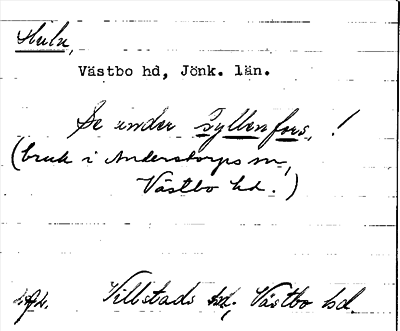 Västbo hd, Jönk. län.
Se under Gyllenfors, !
(bruk i Anderstorps sn,
Västbo hd.)
Villstads sd, Västbo hd.